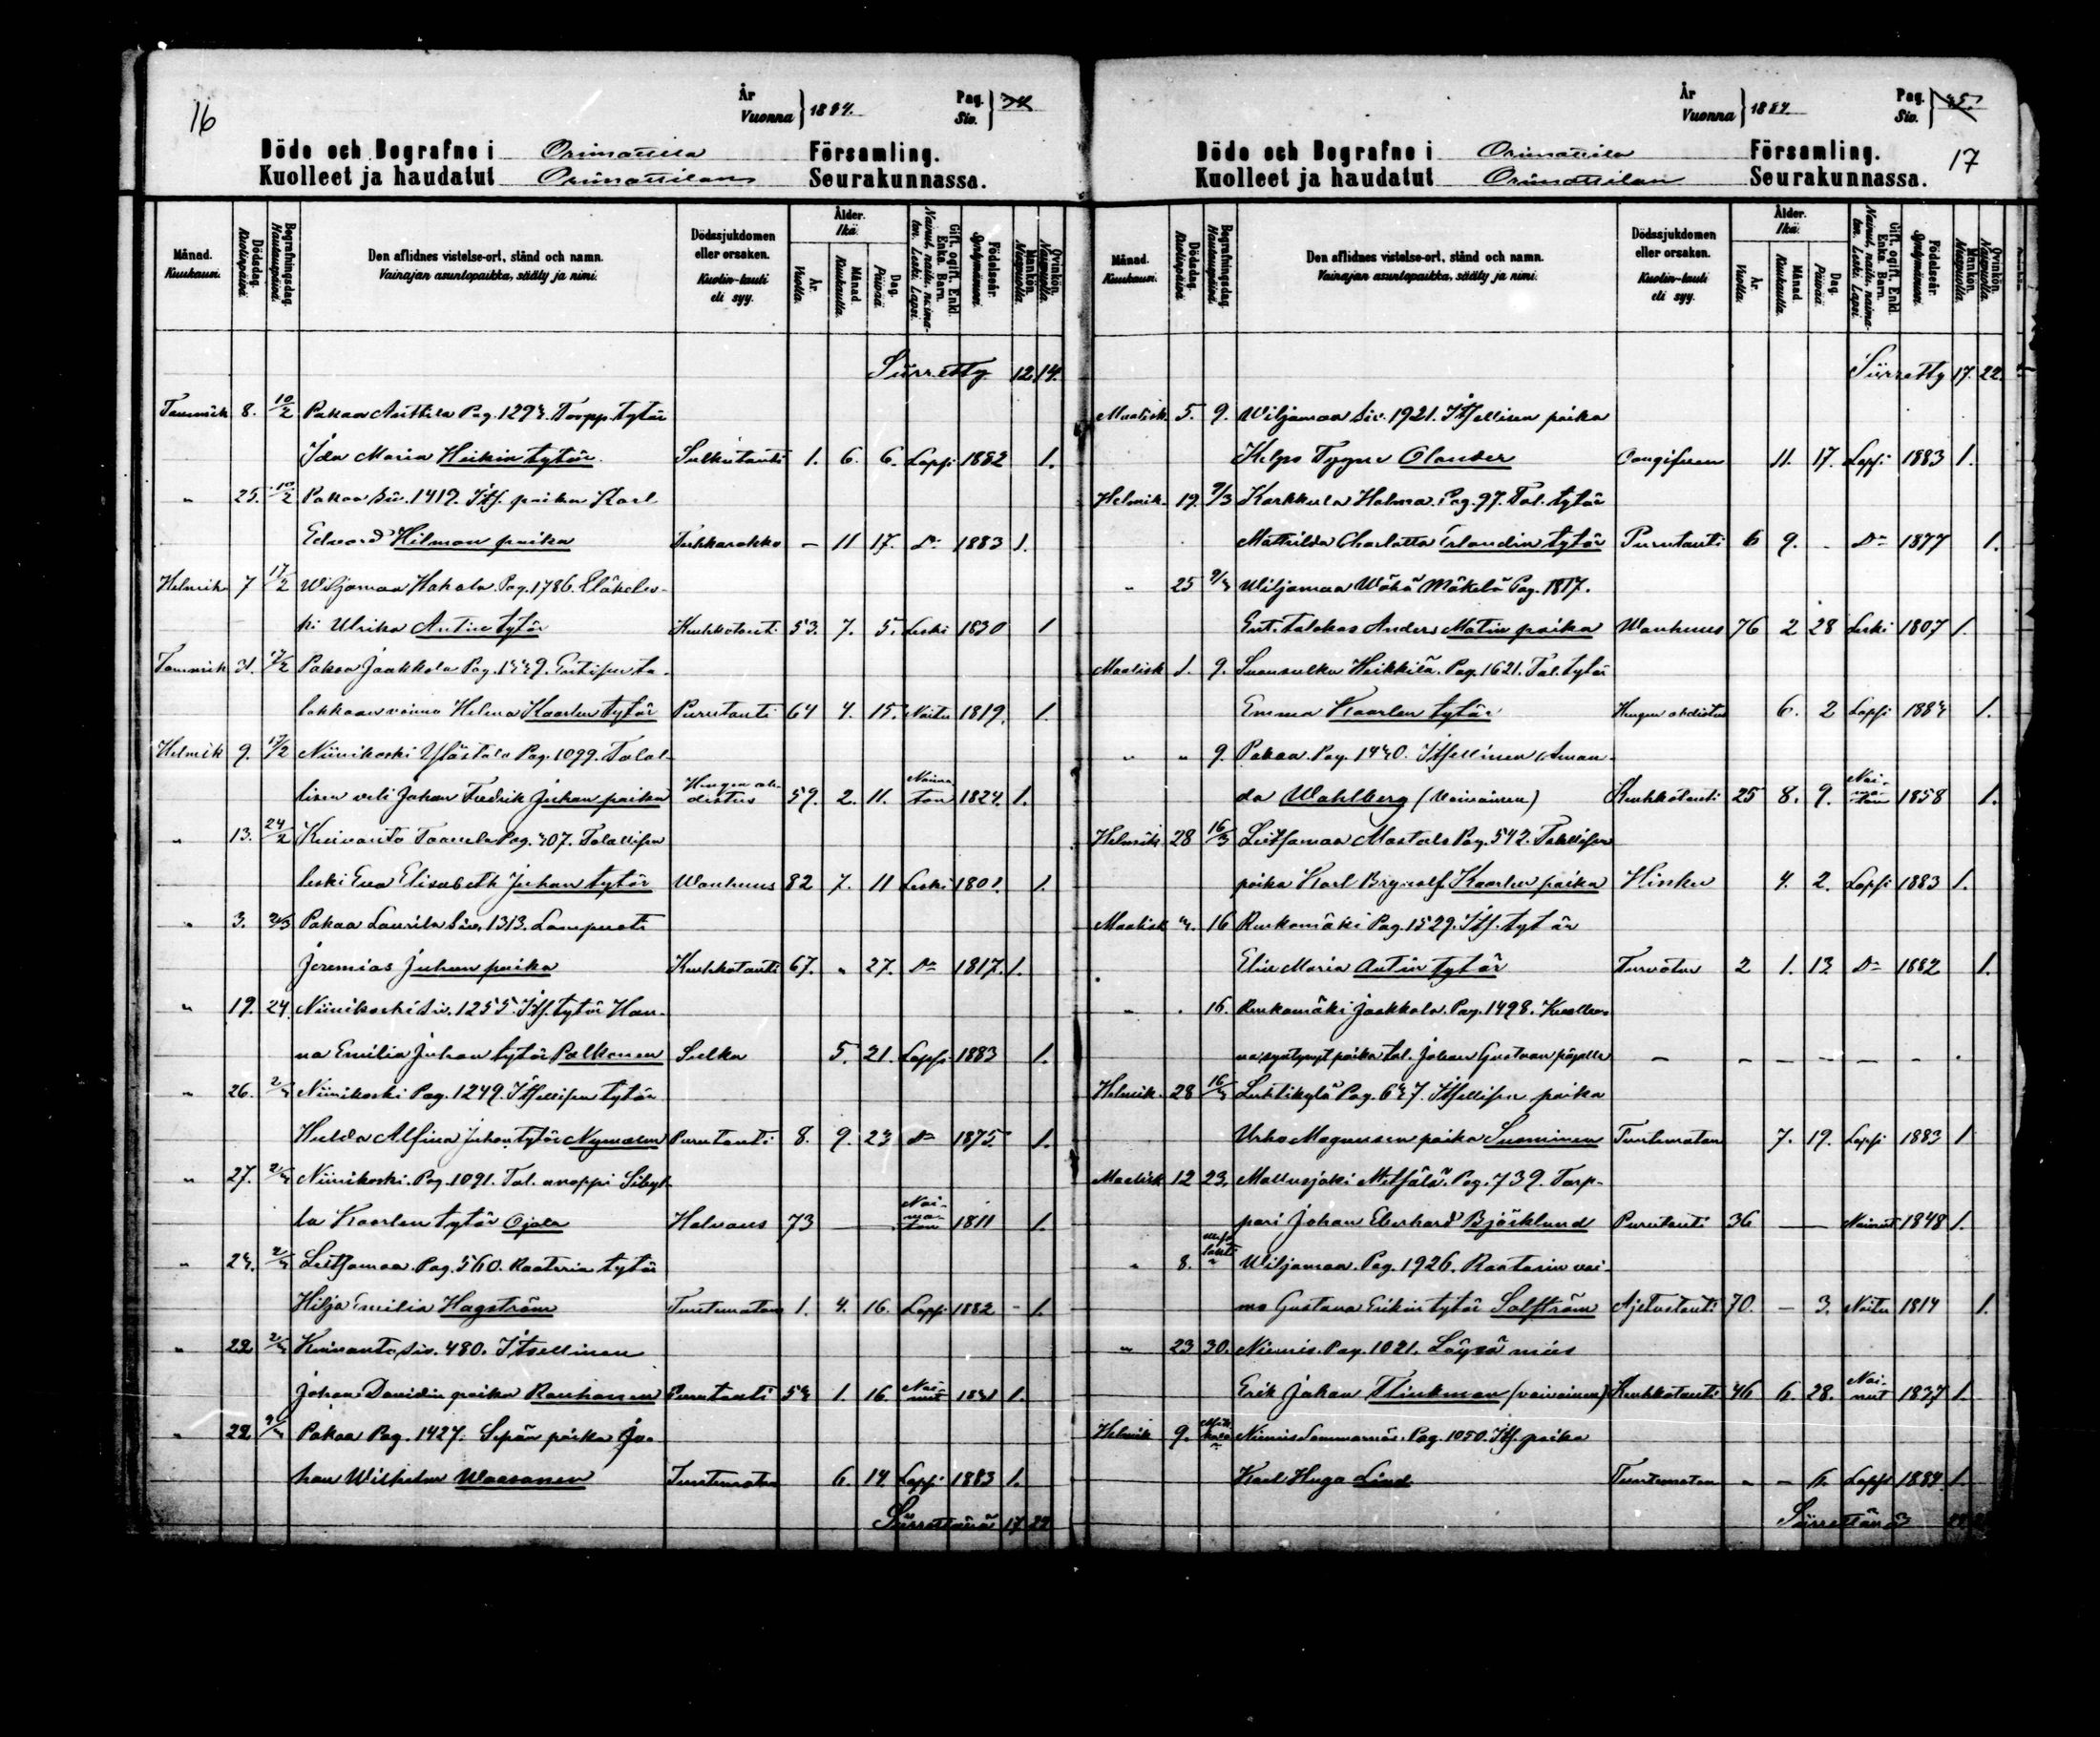 16
År
Vuonna } 1884.
Pag.
Siv.
Döde och Begrafne i Orimattila Församling.
Kuolleet ja haudatut Orimattilan Seurakunnassa.
Månad. Kuukausi.
Dödsdag. Kuolinpäivä.
Begrafningsdag. Hautauspäivä.
Den aflidnes vistelse-ort, stånd och namn.
Vainajan asuntopaikka, sääty ja nimi.
Dödssjukdomen eller orsaken.
Kuolin-tauti eli syy.
Ålder. Ikä.
År. Vuotta.
Månad. Kuukautta.
Dag. Päivää.
Gift, ogift. Enkl. Enka. Barn.
Nainut, naitu, naimaton. Leski. Lapsi.
Födelseår. Syntymävuosi.
Mankön. Miespuolia.
Qvinkön. Naispuolia.
Siirretty 12 14.
Tammik 8. 10/2 Pakaa Anttila Pag. 1274. Torpp. tytär
Ida Maria Heikin tytär Sulkutauti 1. 6. 6. Lapsi 1882 1.
" 25. 10/2 Pakaa Siv. 1419. Its. poika Karl
Edvard Hilman poika Tuhkarokko – 11 17. Do 1883 1.
Helmik 7 17/2 Wiljamaa Hakola. Pag. 1786. Eläkeles-
ki Ulrika Antin tytär Keuhkotauti 53. 7. 5. Leski 1830 1
Tammik 31. 17/2 Pakaa Jaakkola Pag. 1449. Entisen ta-
lokkaan vaimo Helena Kaarlen tytär Purutauti 64 4. 15. Naitu 1819. 1.
Helmik 9. 17/2 Niinikoski Ylästalo Pag. 1099. Talol-
lisen veli Johan Fredrik Juhan poika Hengen ahdistus 59. 2. 11. Naimaton 1824. 1.
" 13. 24/2 Kuivanto Taamela Pag. 407. Talallisen
leski Eva Elisabeth Juhan tytär Wanhuus 82 7. 11 Leski 1801. 1.
" 3. 2/3 Pakaa Laurila Siv. 1313. Lampuoti
Jeremias Juhan poika Keuhkotauti 67. " 27. Do 1817. 1.
" 19. 24. Niinikoski Siv. 1255. Its. tytär Han-
na Emilia Juhan tytär Palkonen Sulku 5. 21. Lapsi 1883 1.
" 26. Niinikoski Pag. 1249. Itsellisen tytär
Hulda Alfina Juhan tytär Nyman Purutauti 8. 9. 23 Do 1875 1.
" 27. Niinikoski. Pag. 1091. Tal. anoppi Sibyl-
la Kaarlen tytär Ojala Halvaus 73 Naimaton 1811 1.
" 24. Leitsamaa. Pag. 560. Raatarin tytär
Hilja Emilia Hagström Tuntematon 1. 4. 16. Lapsi 1882 - 1.
" 22 Kuivanto Siv. 480. Itsellinen
Johan Davidin poika Rauhanen Purutauti 54 1. 16. Nainut 1. 
" 22 Pakaa Pag. 1427. Sepän poika Jo-
han Wilhelm Waasanen Tuntematon 6. 14 Lapsi 1883 1.
Siirrettävä 17 22
År
Vuonna } 1884.
Pag.
Siv.
Döde och Begrafne i Orimattila Församling.
Kuolleet ja haudatut Orimattilan Seurakunnassa.
17
Månad. Kuukausi.
Dödsdag. Kuolinpäivä.
Begrafningsdag. Hautauspäivä.
Den aflidnes vistelse-ort, stånd och namn.
Vainajan asuntopaikka, sääty ja nimi.
Dödssjukdomen eller orsaken.
Kuolin-tauti eli syy.
Ålder. Ikä.
År. Vuotta.
Månad. Kuukautta.
Dag. Päivää.
Gift, ogift. Enkl. Enka. Barn.
Nainut, naitu, naimaton. Leski. Lapsi.
Födelseår. Syntymävuosi.
Mankön. Miespuolia.
Qvinkön. Naispuolia.
Siirretty 17. 22.
Maalisk 5. 9. Wiljamaa Siv. 1921. Itsellisen poika
Kelpo Olander 11. 17. Lapsi 1883 1.
Helmik. 19. 9/3 Karkkula Halma. Pag. 97. Tal. tytär
Mathilda Charlotta Erlandin tytär Purutauti 6 9. - Do 1877 1.
" 25 Wiljamaa Wähä Mäkelä Pag. 1817.
Ent. talokas Anders Matin poika Wanhuus 76 2 28 Leski 1807 1.
Maalisk 1. 9. Luhtikylä Heikkilä. Pag. 1621. Tal. tytär
Emma Kaarlen tytär Hengen ahdistus 6. 2 Lapsi 1884 1.
" " 9. Pakaa. Pag. 1440. Itsellinen Aman-
da Wahlberg (Vaivainen) Keuhkotauti 25 8. 9. Naimaton 1858 1.
Helmik 28 16/3 Leitsamaa Mastola Pag. 542. Talollisen
poika Karl Brynolf Kaarlen poika Hinku 4. 2. Lapsi 1883 1.
Maalisk 4. 16 Ruukomäki Pag. 1529. Its. tytär
Elin Maria Antin tytär Turvotus 2 1. 13 Do 1882 1.
" . 16. Ruukomäki Jaakkola. Pag. 1498. Kuollee-
na syntynyt poika tal. Johan Gustaan pojalle — — — — — — .
Helmik. 28 Luhtikylä Pag. 647. Itsellisen poika
Urho Magnuksen poika Suominen Tuntematon 7. 19. Lapsi 1883 1
Maalisk 12 23. Mallusjoki Metsälä. Pag. 739. Torp-
pari Johan Eberhard Björklund Purutauti 36 — — Nainut 1848 1.
" 8. Wiljamaa. Pag. 1926. Raatarin vai-
mo Gustava Erikin tytär Salström Ajetustauti 70. — 3. Naitu 1814 1.
" 23 30. Niemis. Pag. 1021. Löysä mies
Erik Johan Flinkman (vaivainen) Keuhkotauti 46 6. 28. Nainut 1837 1.
Helmik 9. Niemis Lammarnäs. Pag. 1050. Its. poika
Karl Hugo Lind Tuntematon - - 6. Lapsi 1884. 1.
Siirrettävä